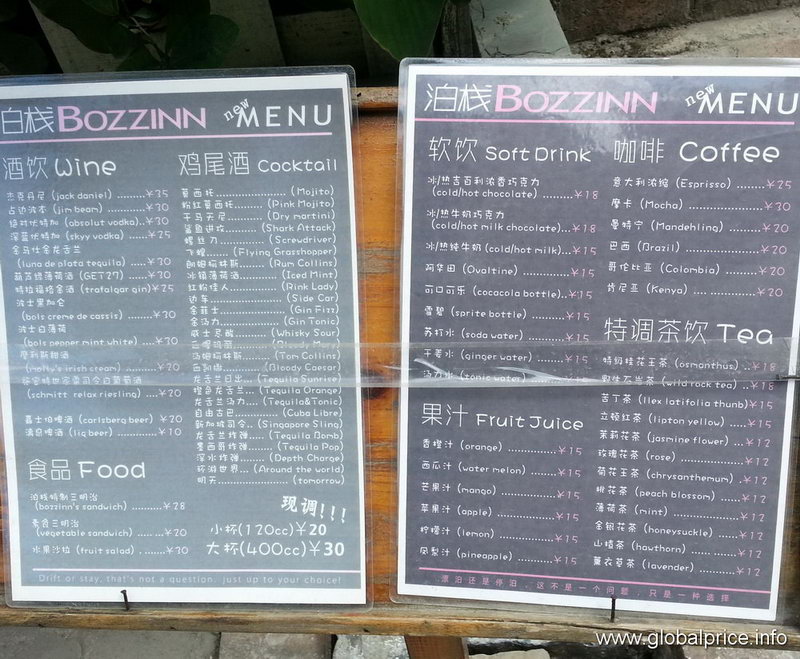 泊栈BOZZINN new MENU
酒饮 Wine
杰克丹尼 (jack daniel) ..........¥35
占边波本 (jim beam) ..........¥30
绝对伏特加 (absolut vodka)...¥30
深蓝伏特加 (skyy vodka) ......¥25
金马仕金龙舌兰
(luna de plata tequila) .....¥30
葫芦绿薄荷酒 (GET27) ........¥30
特拉福格金酒 (trafalgar gin)¥25
波士黑加仑
(bols creme de cassis).......¥30
波士白薄荷
(bols pepper mint white) ...¥30
摩利斯甜酒
(molly's irish cream) .......¥20
(schmitt relax riesling) ....¥20
嘉士伯啤酒 (carlsberg beer) ¥20
漓泉啤酒 (liq beer) ..........¥10
食品 Food
泊栈特制三明治
(bozzinn's sandwich) ........¥28
素食三明治
(vegetable sandwich) ..... ..¥20
水果沙拉 (fruit salad) . ......¥30
鸡尾酒 Cocktail
莫西托..................(Mojito)
粉红莫西托............(Pink Mojito)
干马天尼..............(Dry martini)
鲨鱼进攻..............(Shark Attack)
螺丝刀................(Screwdriver)
飞蝗......(Flying Grasshopper)
朗姆柯林斯.........(Rum Collins)
冰镇薄荷酒..........(Iced Mint)
红粉佳人..............(Rink Lady)
边车....................(Side Car)
金菲士..................(Gin Fizz)
金汤力................(Gin Tonic)
威士忌酸.........(Whisky Sour)
血腥玛丽.........(Bloody Mery)
汤姆柯林斯........(Tom Collins)
(Bloody Caesar)
龙舌兰日出....(Tequila Sunrise)
橙色龙舌兰....(Tequila Orange)
龙舌兰汤力.....(Tequila&Tonic)
自由古巴............(Cuba Libre)
新加坡司令....(Singapore Sling)
龙舌兰炸弹......(Tequila Bomb)
墨西哥炸弹.......(Tequila Pop)
深水炸弹........(Depth Charge)
环游世界...(Around the world)
明天..................(tomorrow)
现调!!!
小杯(120cc)¥20
大杯(400cc)¥30
Drift or stay, that's not a question , just up to your choice!
泊栈BOZZINN new MENU
软饮 Soft Drink
冰/热吉百利浓香巧克力
(cold/hot chocolate) .........¥18
冰/热牛奶巧克力
(cold/hot milk chocolate)...¥18
冰/热纯牛奶 (cold/hot milk)....¥15
阿华田 (Ovaltine) ............¥15
可口可乐 (cocacola bottle)..¥15
雪碧 (sprite bottle) .........¥15
苏打水 (soda water) .........¥15
干姜水 (ginger water) .......¥15
汤力水 (tonic water) ........¥15
果汁 Fruit Juice
香橙汁 (orange) ..............¥15
西瓜汁 (water melon) ........¥15
芒果汁 (mango) ...............¥15
苹果汁 (apple) ................¥15
柠檬汁 (lemon) ...............¥15
凤梨汁 (pineapple) ...........¥15
咖啡 Coffee
意大利浓缩 (Espresso) .......¥25
摩卡 (Mocha) .................¥30
曼特宁 (Mandehling) .........¥20
巴西 (Brazil) .................¥20
哥伦比亚 (Colombia) .........¥20
肯尼亚 (Kenya) ...............¥20
特调茶饮 Tea
特级桂花王茶 (osmanthus)...¥18
野生石崖茶 (wild rock tea)...¥18
苦丁茶 (Ilex latifolia thunb)¥15
立顿红茶 (lipton yellow) ....¥15
茉莉花茶 (jasmine flower) ...¥12
玫瑰花茶 (rose) ..............¥12
菊花王茶 (chrysanthemum) .¥12
桃花茶 (peach blossom) .....¥12
薄荷茶 (mint) .................¥12
金银花茶 (honeysuckle) ......¥12
山楂茶 (hawthorn) ...........¥12
薰衣草茶 (lavender) ..........¥12
漂泊还是停泊，这不是一个问题，只是一种选择
www.globalprice.info